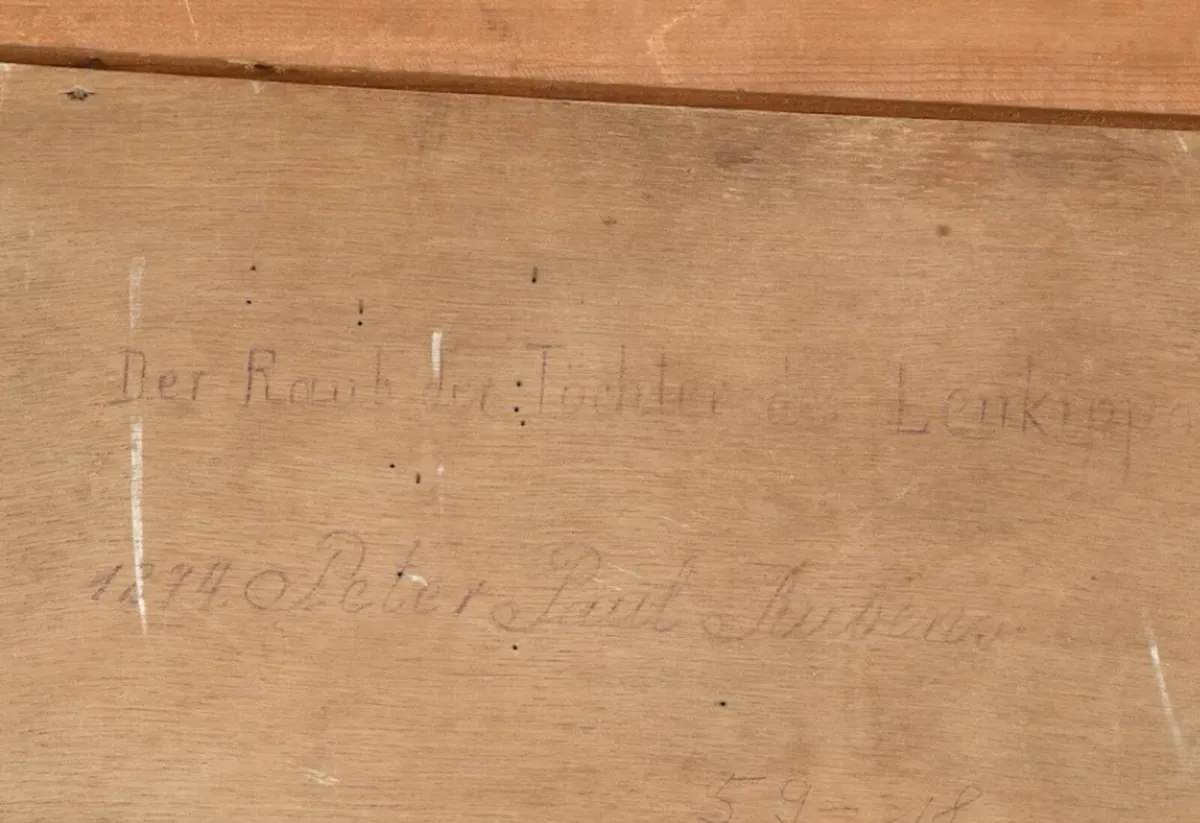 Der Raub der Töchter des Leukippo
1274. Peter Paul Rubens
59-18